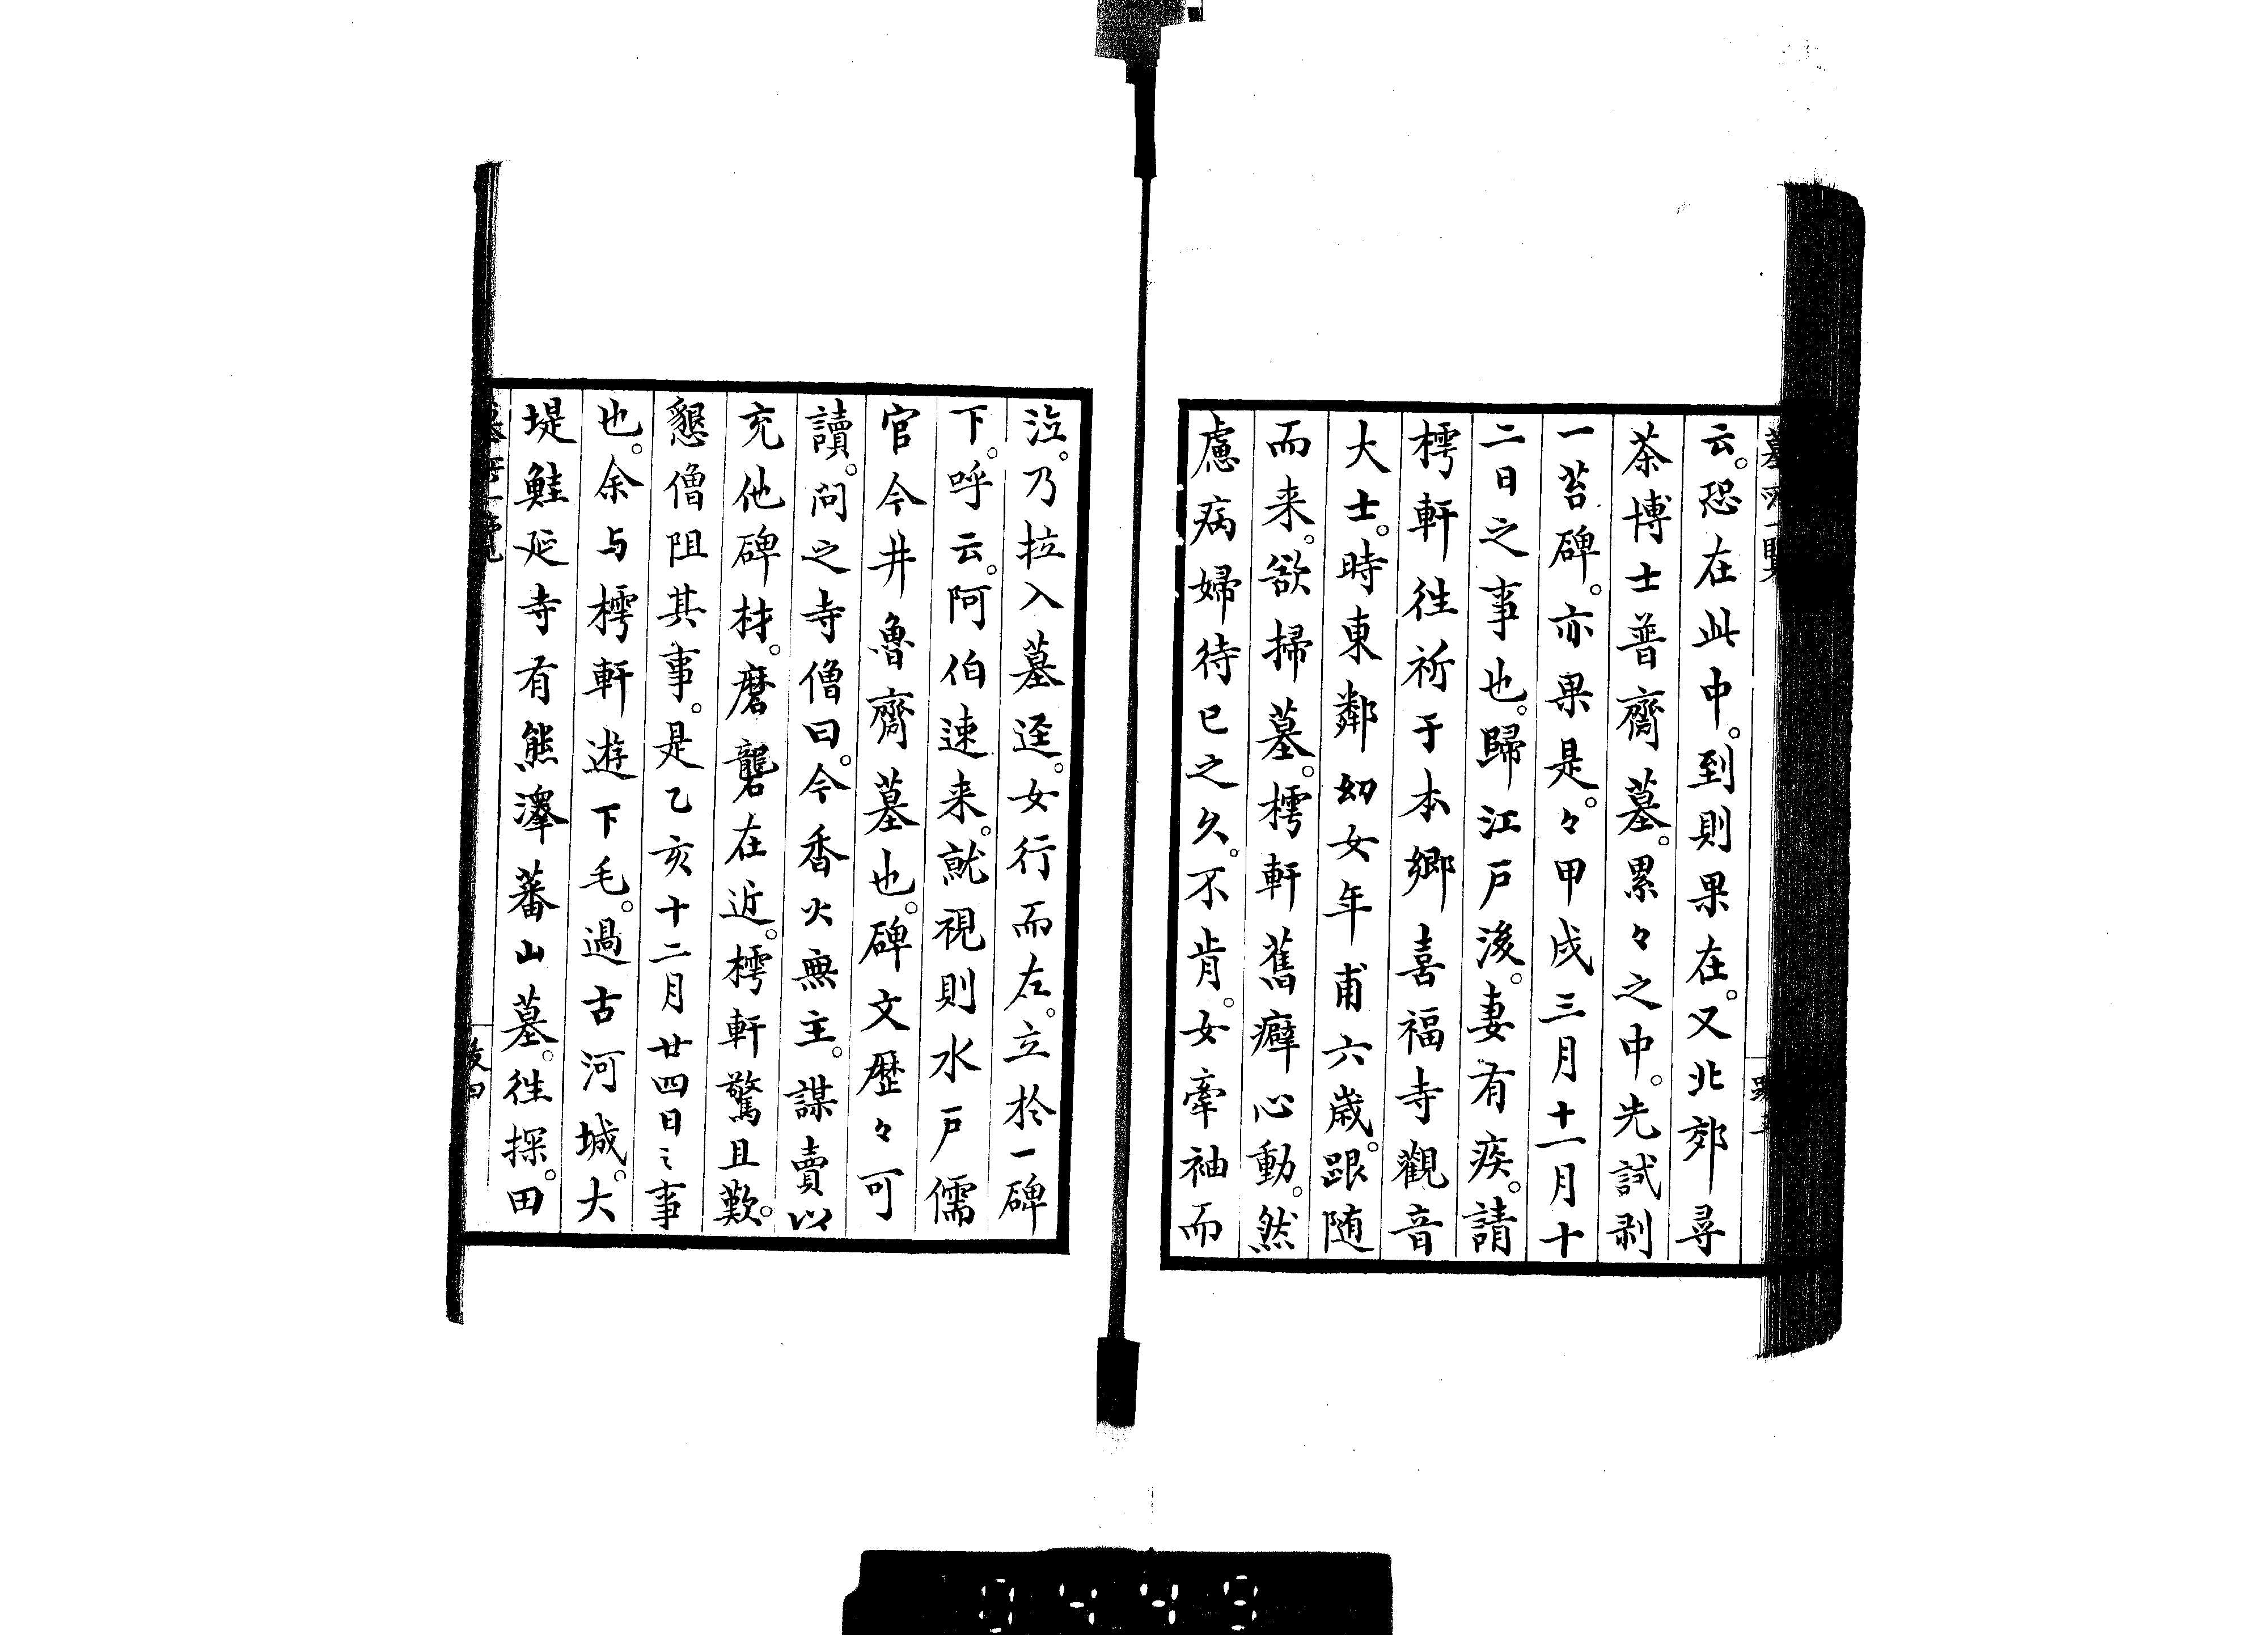 云。恐在此中。到則果在。又北郊尋
茶博士普齋墓。累々之中。先試剥
一苔碑。亦果是。々甲戌三月十一月十
二日之事也。歸江戸後。妻有疾。請
樗軒徃祈于本郷喜福寺觀音
大士。時東鄰幼女年甫六歳。跟随
而来。欲掃墓。樗軒舊癖心動。然
慮病婦待已之久。不肯。女牽袖而
泣。乃拉入墓逕。女行而左。立於一碑
下。呼云。阿伯速来。就視則水戸儒
官今井魯齋墓也。碑文歴々可
讀。問之寺僧曰。今香火無主。謀賣以
充他碑材。磨礱在近。樗軒驚且歎。
懇僧阻其事。是乙亥十二月廿四日之事
也。余与樗軒遊下毛。過古河城。大
堤鮭延寺有熊澤蕃山墓。徃探。田